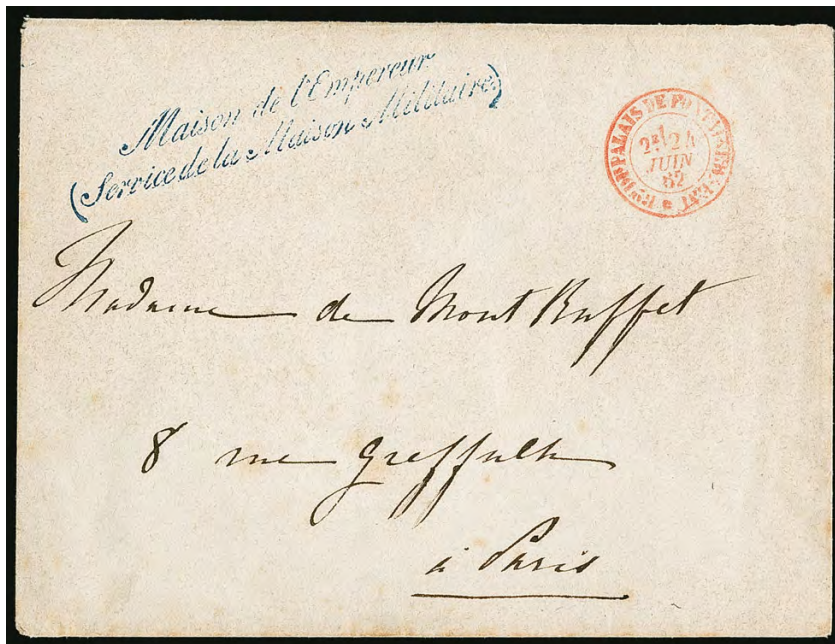 Maison de l'Empereur
(Service de la Maison Militaire)
PALAIS DE FONTAINEBLEAU
2E 24
JUIN
62
Madame de Mont Ruffet
8 rue Greffulh
à Paris